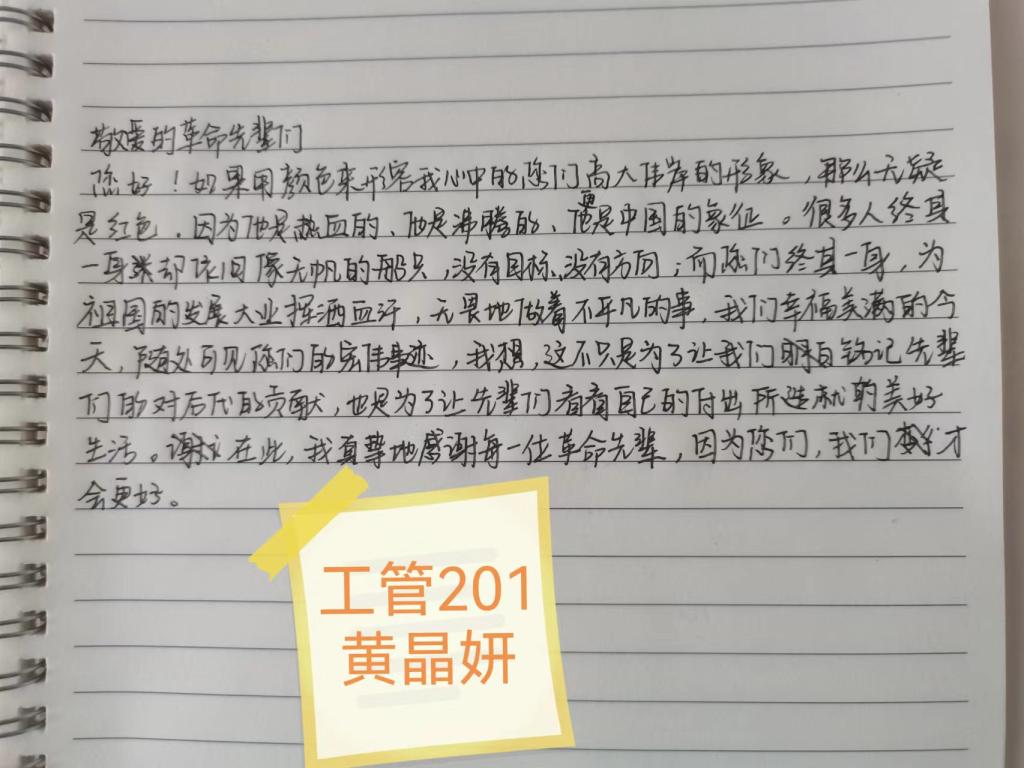 敬爱的革命先辈们
您好！如果用颜色来形容我心中的您们高大伟岸的形象，那么无疑
是红色。因为他是热血的、他是沸腾的、他更是中国的象征。很多人终其
一身却依旧像无帆的船只，没有目标、没有方向；而您们终其一身，为
祖国的发展大业挥洒血汗，无畏地做着不平凡的事，我们幸福美满的今
天，随处可见您们的宏伟事迹，我想，这不只是为了让我们明白铭记先辈
们的对后代的贡献，也是为了让先辈们看看自己的付出所造就的美好
生活。在此，我真挚地感谢每一位革命先辈，因为您们，我们才
会更好。
工管201
黄晶妍